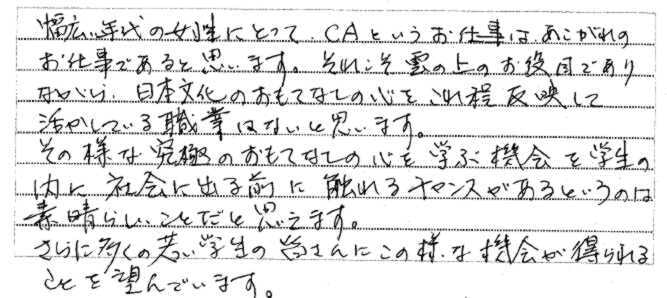 幅広い年代の女性にとって、CAというお仕事はあこがれの
お仕事であると思います。それこそ雲の上のお役目であり
ながら、日本文化のおもてなしの心をこれ程反映して
活かしている職業はないと思います。
その様な究極のおもてなしの心を学ぶ機会を学生の
内に社会に出る前に触れるチャンスがあるというのは
素晴らしいことだと思えます。
さらに多くの若い学生の皆さんにこの様な機会が得られる
ことを望んでいます。